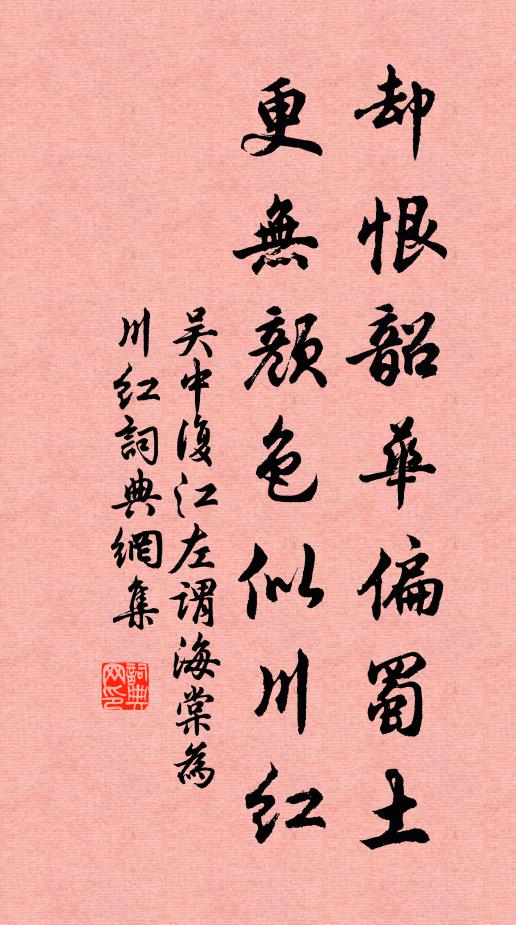 却恨韶華偏蜀土
更無顏色似川红
吴中復江左谓海棠為
川红詞典網集
詞典网印